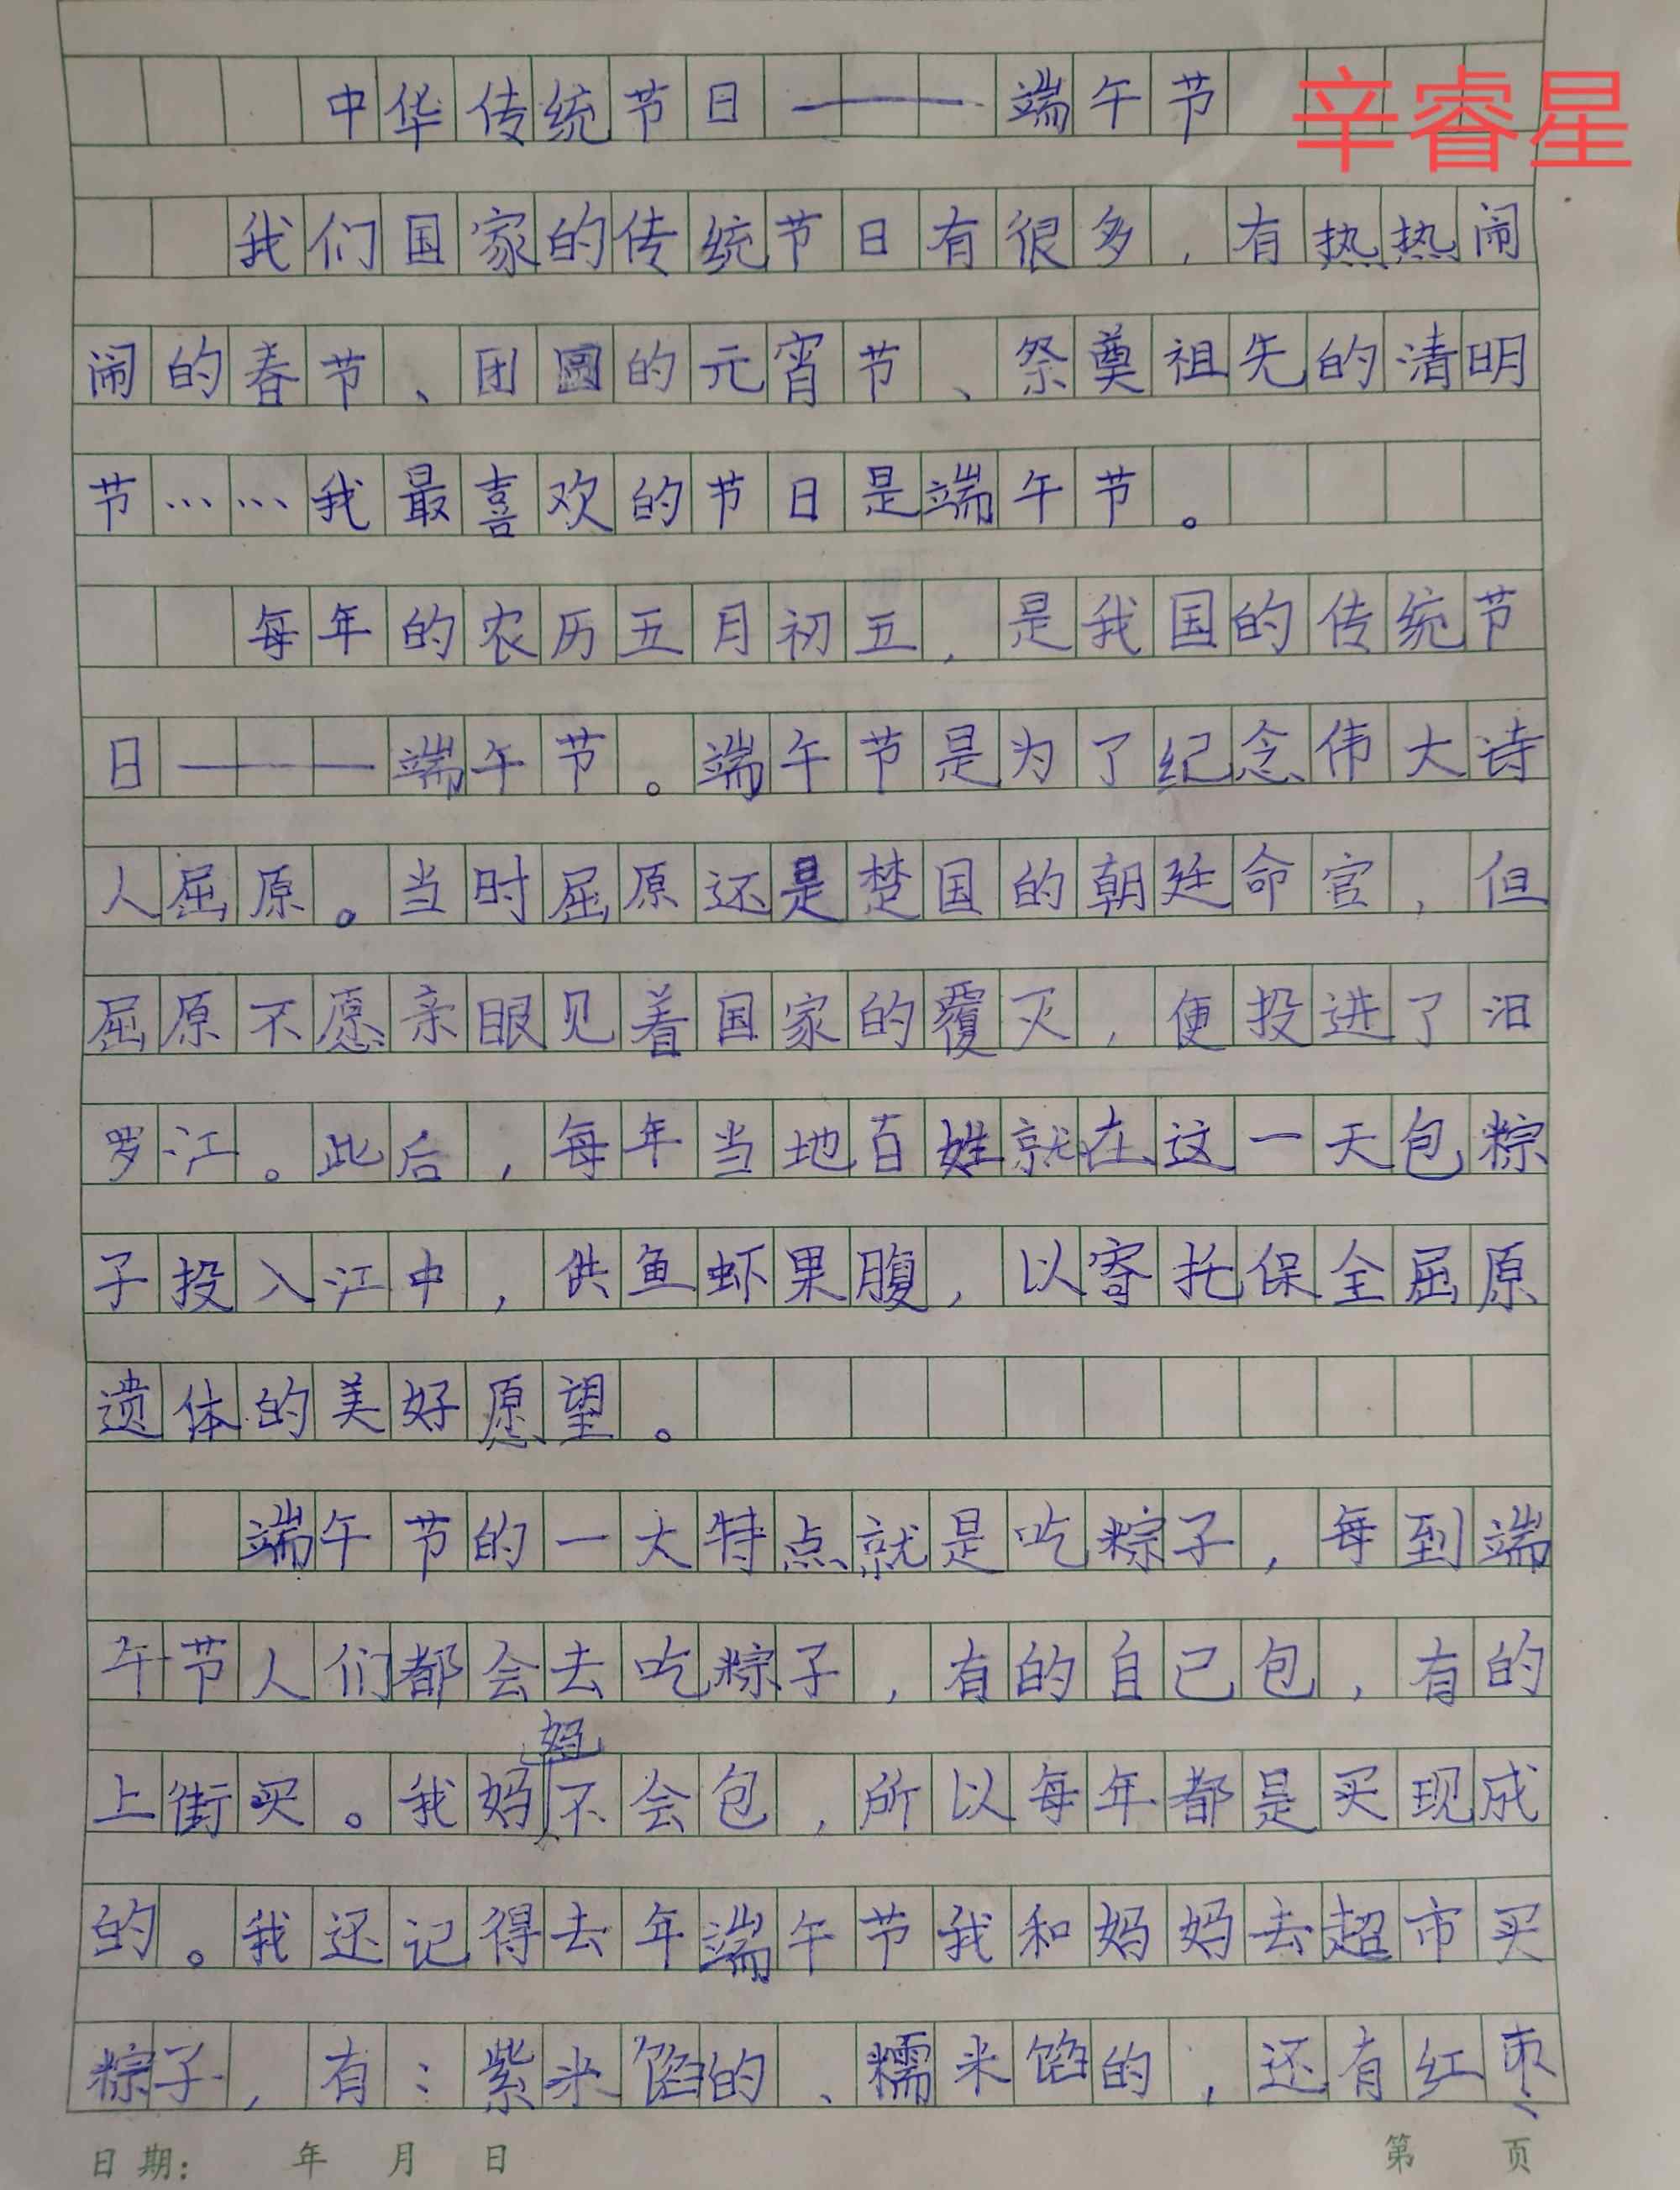 中华传统节日———端午节 辛睿星
我们国家的传统节日有很多，有热热闹
闹的春节、团圆的元宵节、祭奠祖先的清明
节……我最喜欢的节日是端午节。
每年的农历五月初五，是我国的传统节
日———端午节。端午节是为了纪念伟大诗
人屈原。当时屈原还是楚国的朝廷命官，但
屈原不愿亲眼见着国家的覆灭，便投进了汨
罗江。此后，每年当地百姓就在这一天包粽
子投入江中，供鱼虾果腹，以寄托保全屈原
遗体的美好愿望。
端午节的一大特点就是吃粽子，每到端
午节人们都会去吃粽子，有的自己包，有的
上街买。我妈妈不会包，所以每年都是买现成
的。我还记得去年端午节我和妈妈去超市买
粽子，有：紫米馅的、糯米馅的，还有红枣
日期： 年 月 日 第 页